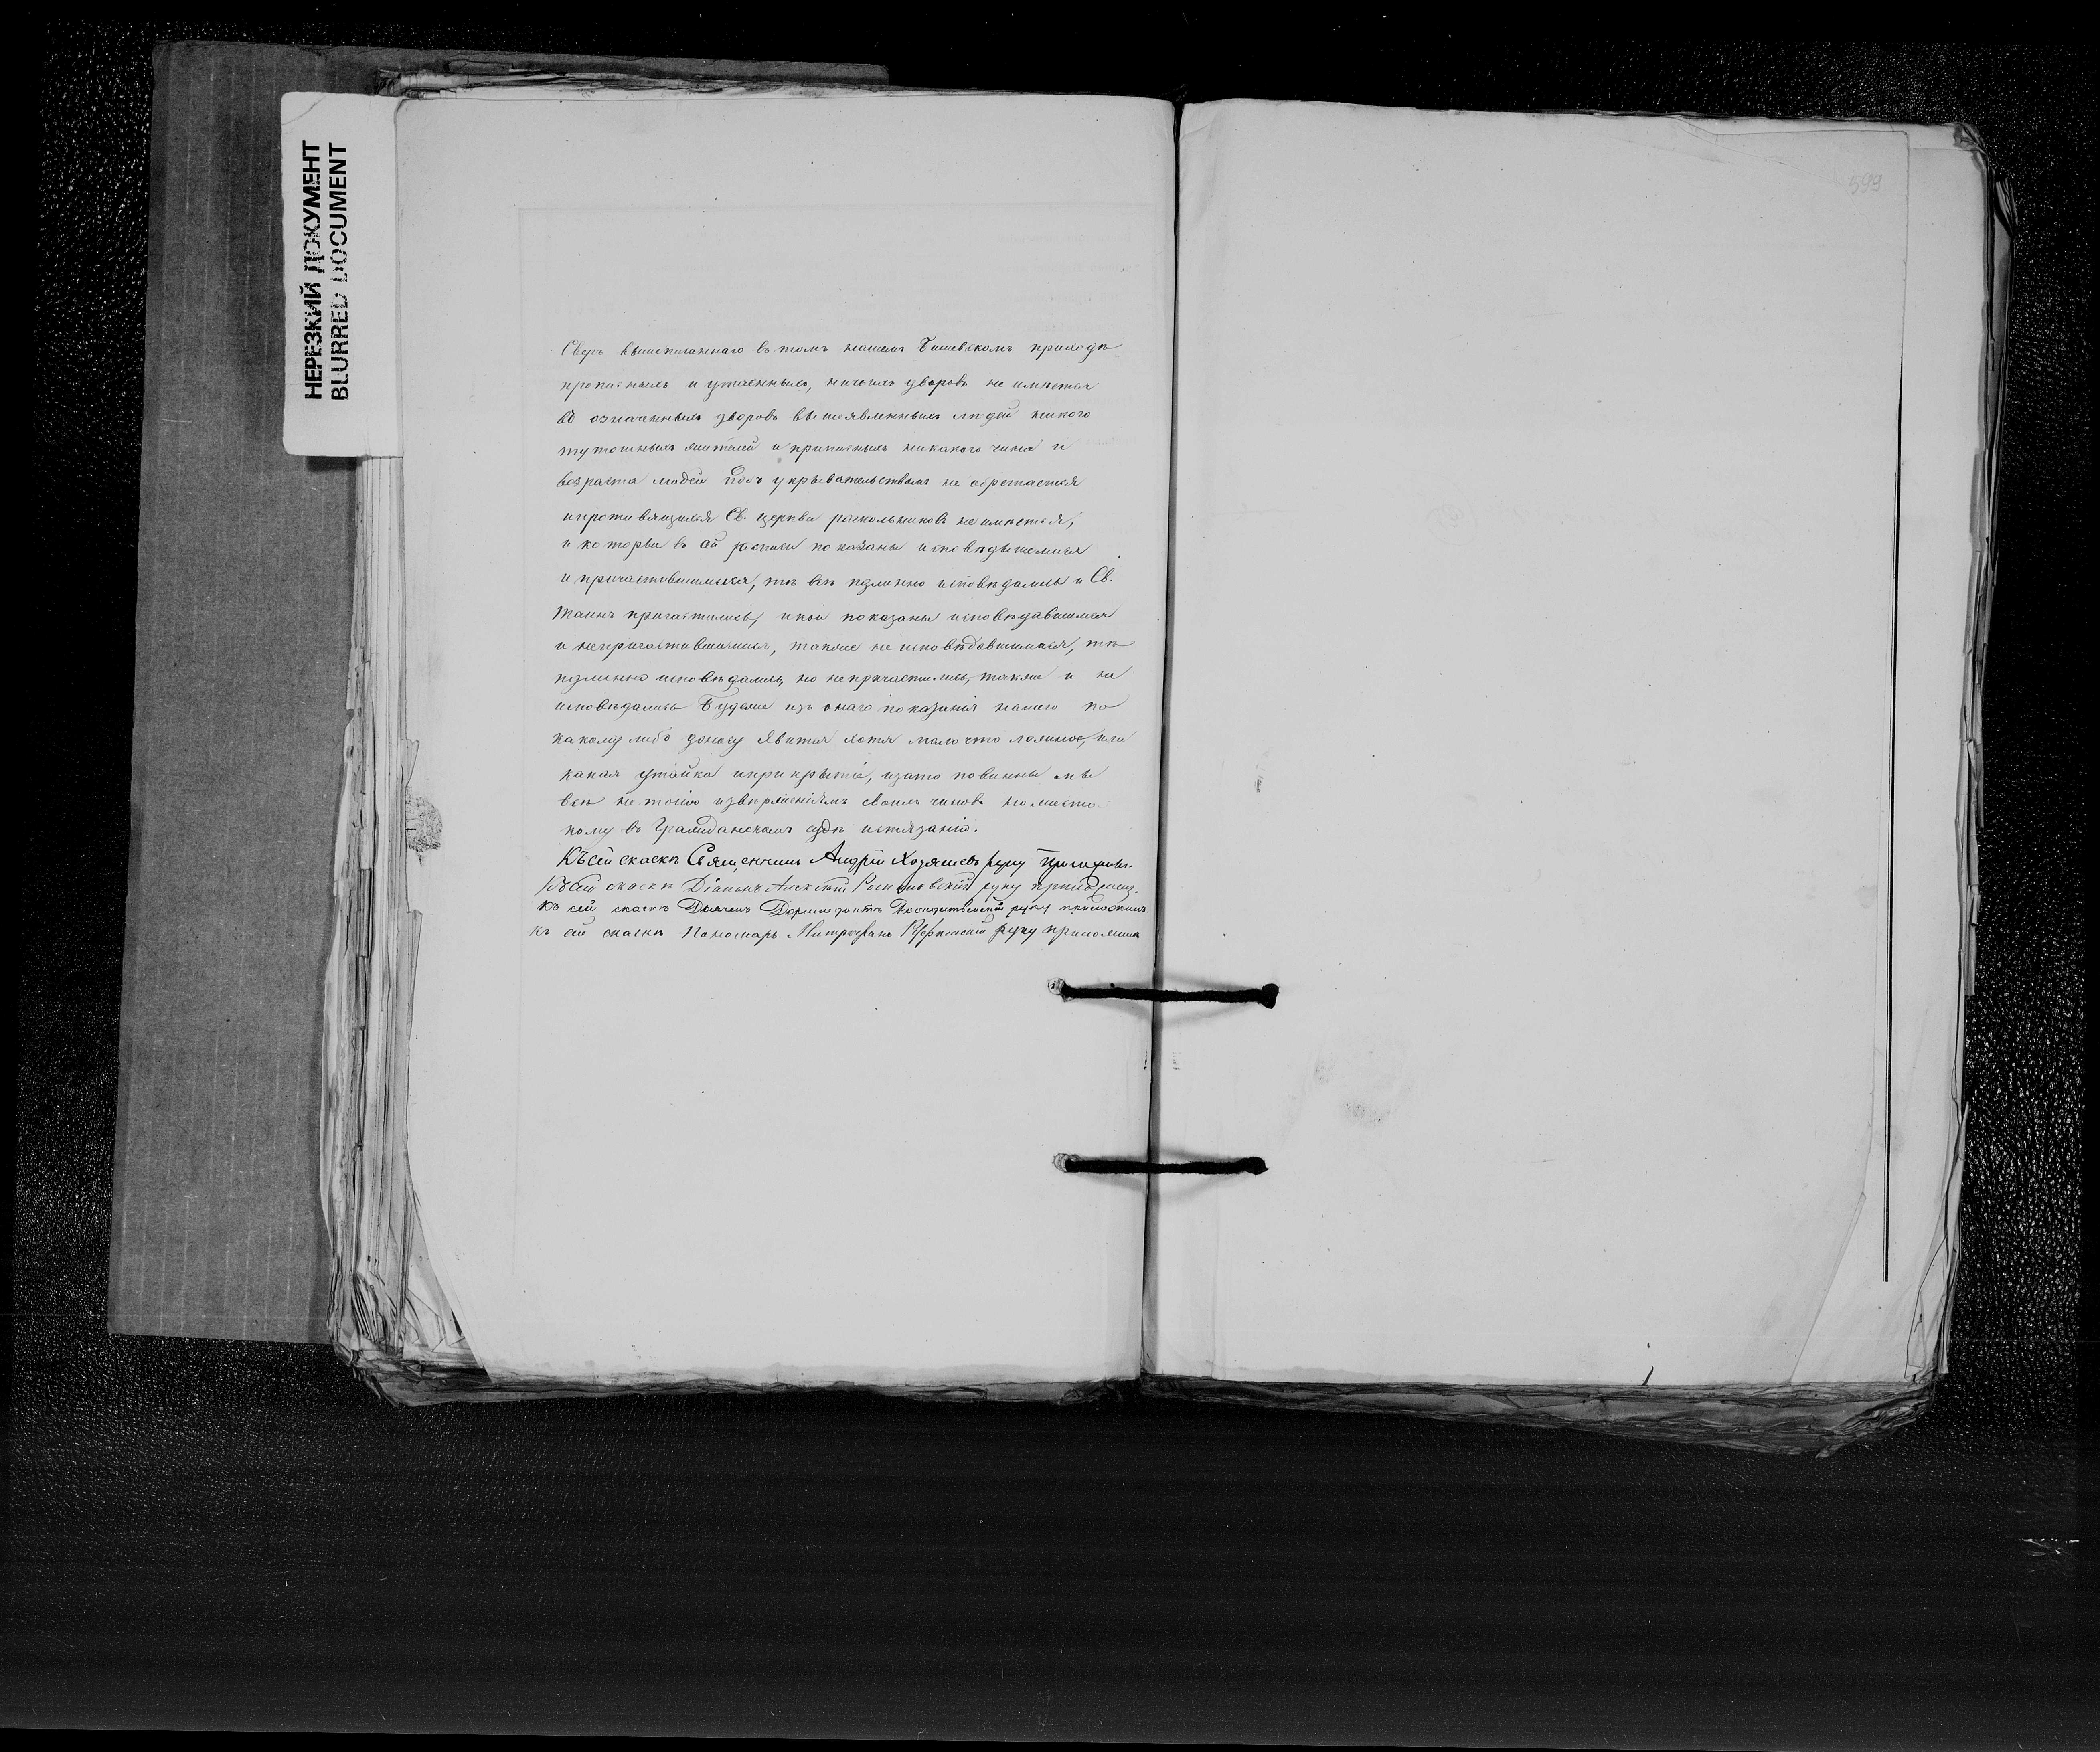 НЕРЕЗКИЙ ДОКУМЕНТ
BLURRED DOCUMENT
599
Сверх вышеписаннаго въ томъ нашемъ приходѣ
прописныхъ и утаенныхъ, дворовъ не имѣется
означенныхъ дворовъ вышеявленныхъ людей никого
тутошныхъ жителей и приписныхъ никакого чина и
возраста людей подъ укрывательствомъ не обретается
и противящихся Св. церкви раскольниковъ не имѣется,
и которые въ сей росписи показаны исповѣдавшимися
и причастившимися, тѣ всѣ подлинно исповѣдались и Св.
Таинъ причастились, и кои показаны исповѣдавшимися
и непричастившимися, также не исповѣдавшимися, тѣ
подлинно исповѣдались, но не причастились, также и не
исповѣдались Будеже изъ онаго показанія нашего по
какому либо доносу явится хотя мало что ложное, или
какая утайка и прикрытіе, и за то повинны мы
всѣ не токмо изверженіямъ своихъ чиновъ но
въ Гражданскомъ судѣ истязанію.
Къ сей сказкѣ Священникъ Андрей руку приложилъ.
Къ сей сказкѣ Діаконъ Алексѣй руку
Къ сей сказкѣ Дьячекъ руку приложилъ.
Къ сей сказкѣ Пономарь Митрофанъ руку приложилъ